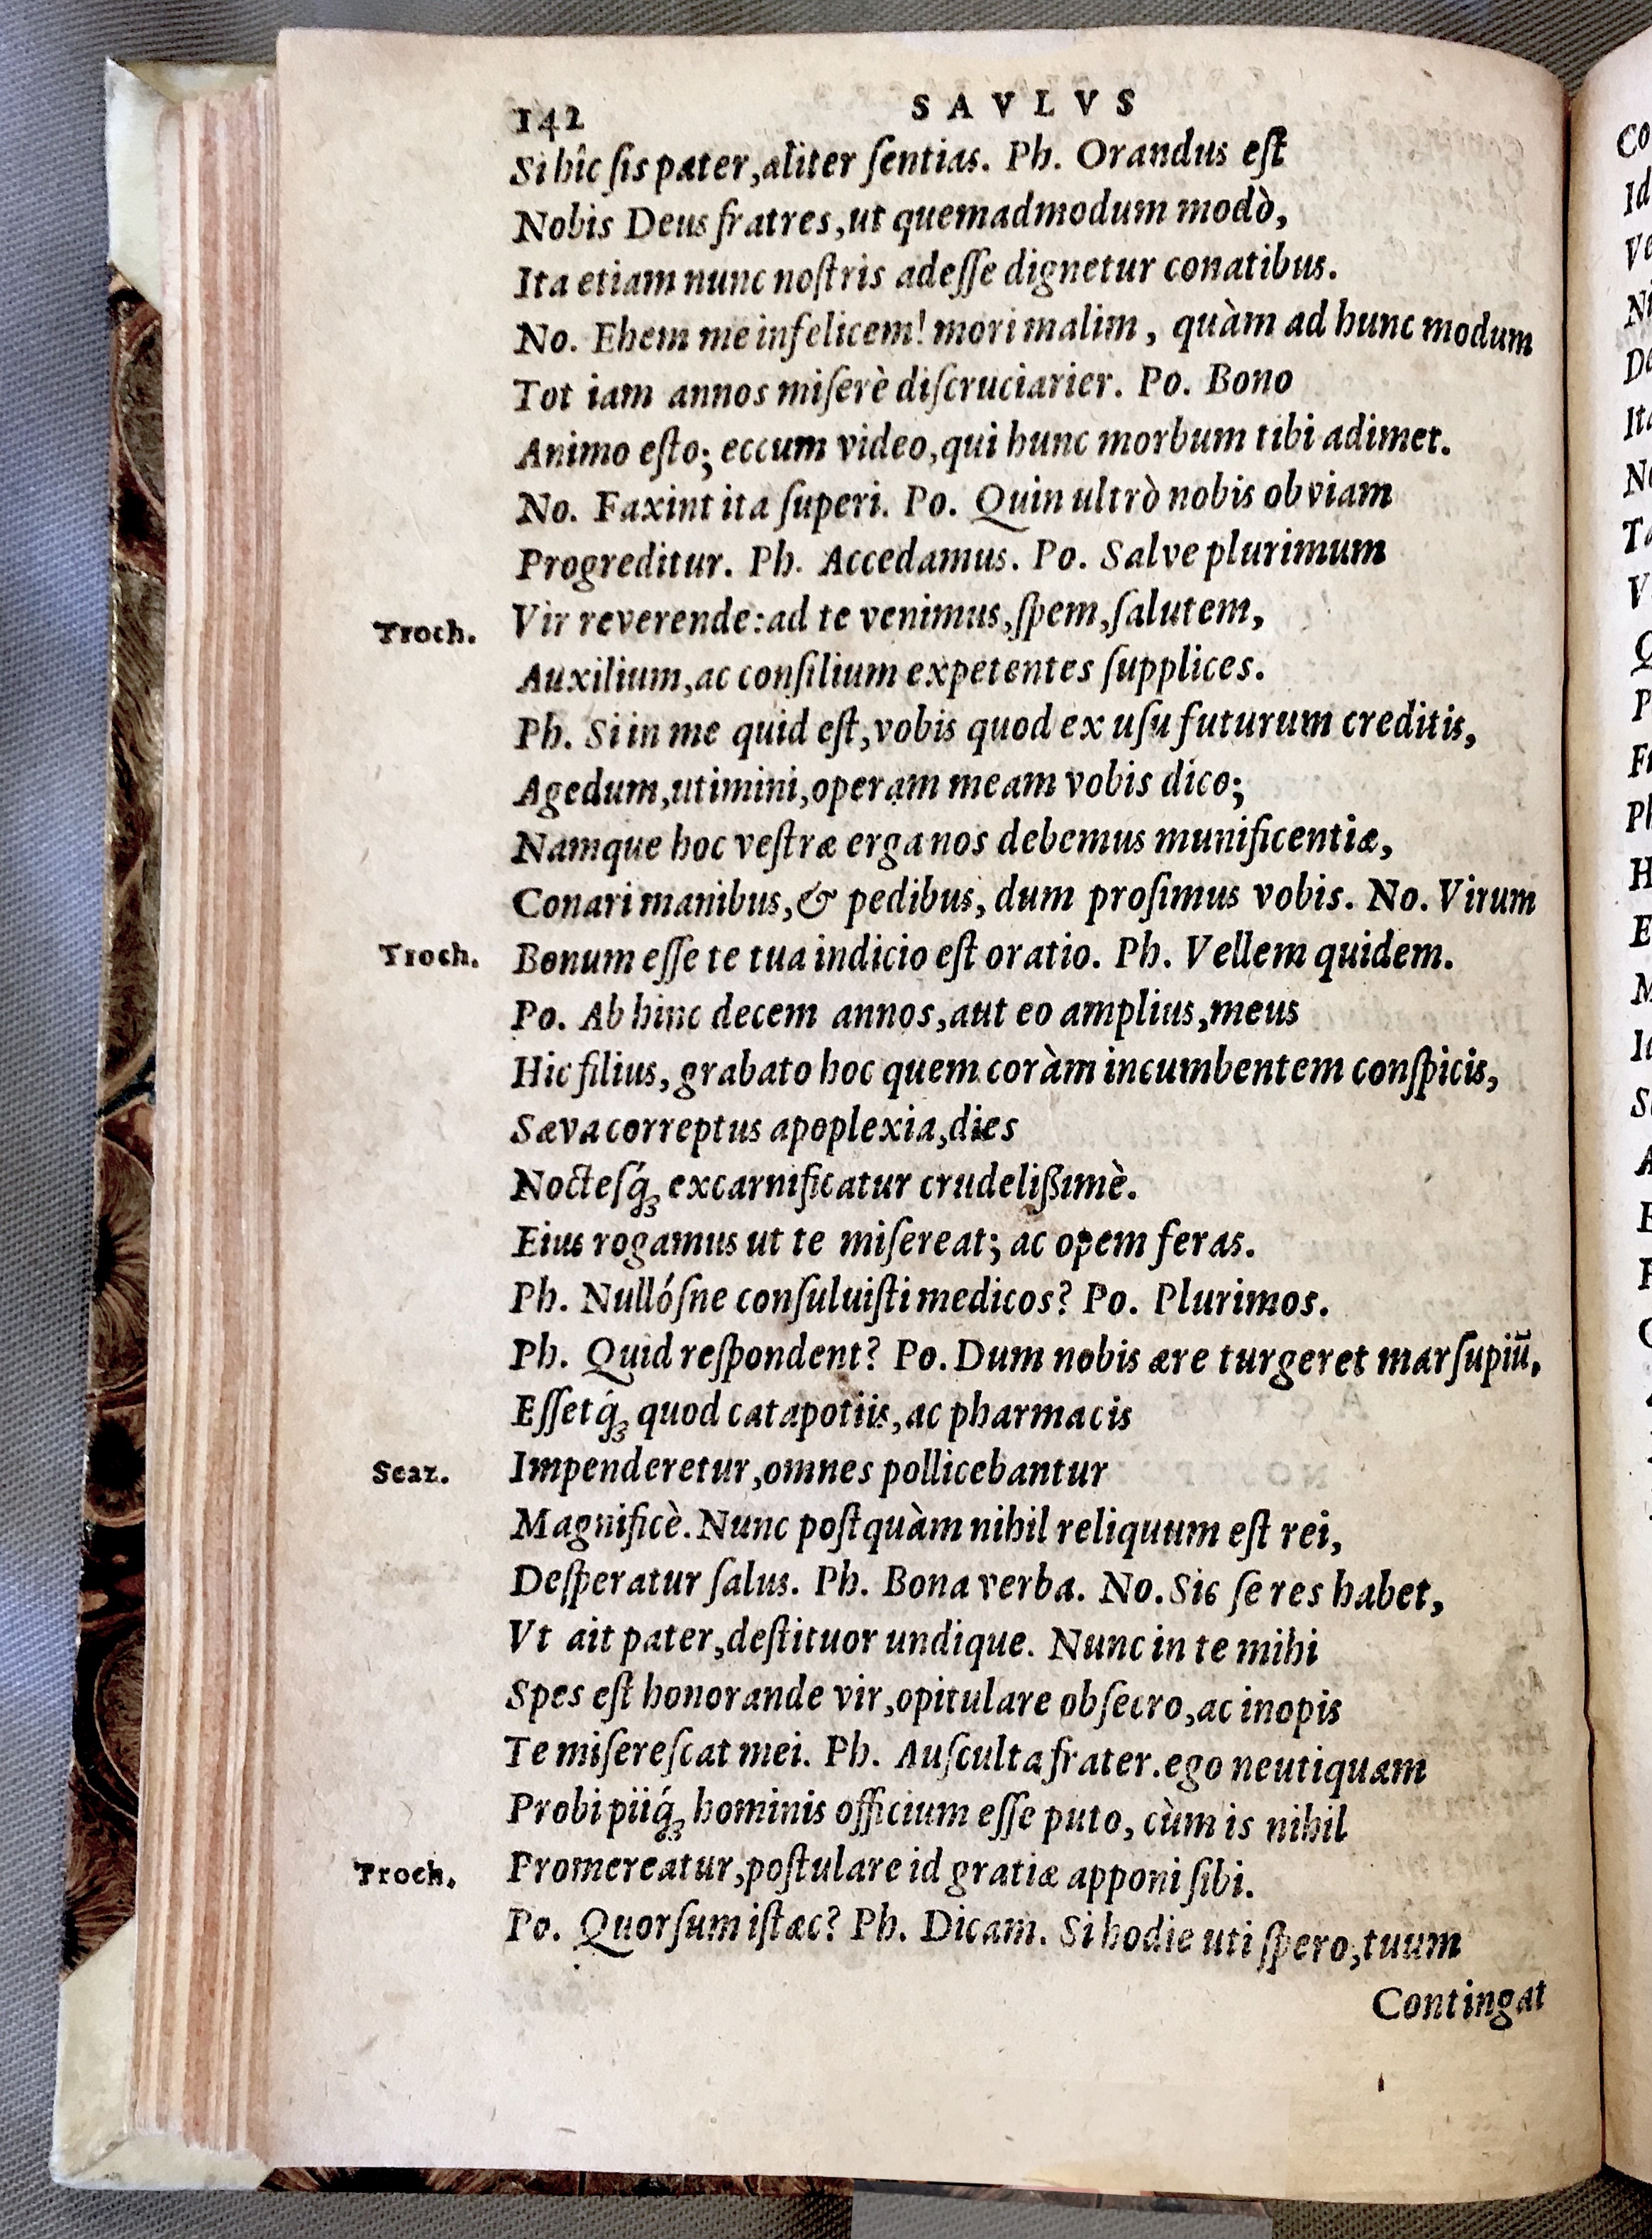 142 SAVLVS
Si hîc ſis pater, aliter ſentias. Ph. Orandus eſt
Nobis Deus fratres, ut quemadmodum modò,
Ita etiam nunc noſtris adeſſe dignetur conatibus.
No. Ehem me infelicem! mori malim, quàm ad hunc modum
Tot iam annos miſerè diſcruciarier. Po. Bono
Animo eſto; eccum video, qui hunc morbum tibi adimet.
No. Faxint ita ſuperi. Po. Quin ultrò nobis obviam
Progreditur. Ph. Accedamus. Po. Salve plurimum
Troch. Vir reverende: ad te venimus, ſpem, ſalutem,
Auxilium, ac conſilium expetentes ſupplices.
Ph. Si in me quid eſt, vobis quod ex uſu futurum creditis,
Agedum, utimini, operam meam vobis dico;
Namque hoc veſtræ erga nos debemus munificentiæ,
Conari manibus, & pedibus, dum proſimus vobis. No. Virum
Troch. Bonum eſſe te tua indicio eſt oratio. Ph. Vellem quidem.
Po. Ab hinc decem annos, aut eo amplius, meus
Hic filius, grabato hoc quem coràm incumbentem conſpicis,
Sæva correptus apoplexia, dies
Nocteſq́ꝫ excarnificatur crudelißimè.
Eius rogamus ut te miſereat; ac opem feras.
Ph. Nullóſne conſuluiſti medicos? Po. Plurimos.
Ph. Quid reſpondent? Po. Dum nobis ære turgeret marſupiũ,
Eſſetq́ꝫ quod catapotiis, ac pharmacis
Scaz. Impenderetur, omnes pollicebantur
Magnificè. Nunc poſtquàm nihil reliquum eſt rei,
Deſperatur ſalus. Ph. Bona verba. No. Sic ſe res habet,
Vt ait pater, deſtituor undique. Nunc in te mihi
Spes eſt honorande vir, opitulare obſecro, ac inopis
Te miſereſcat mei. Ph. Auſculta frater. ego neutiquam
Probi piiq́ꝫ hominis officium eſſe puto, cùm is nihil
Troch. Promereatur, poſtulare id gratiæ apponi ſibi.
Po. Quorſum iſtæc? Ph. Dicam. Si hodie uti ſpero, tuum
Contingat